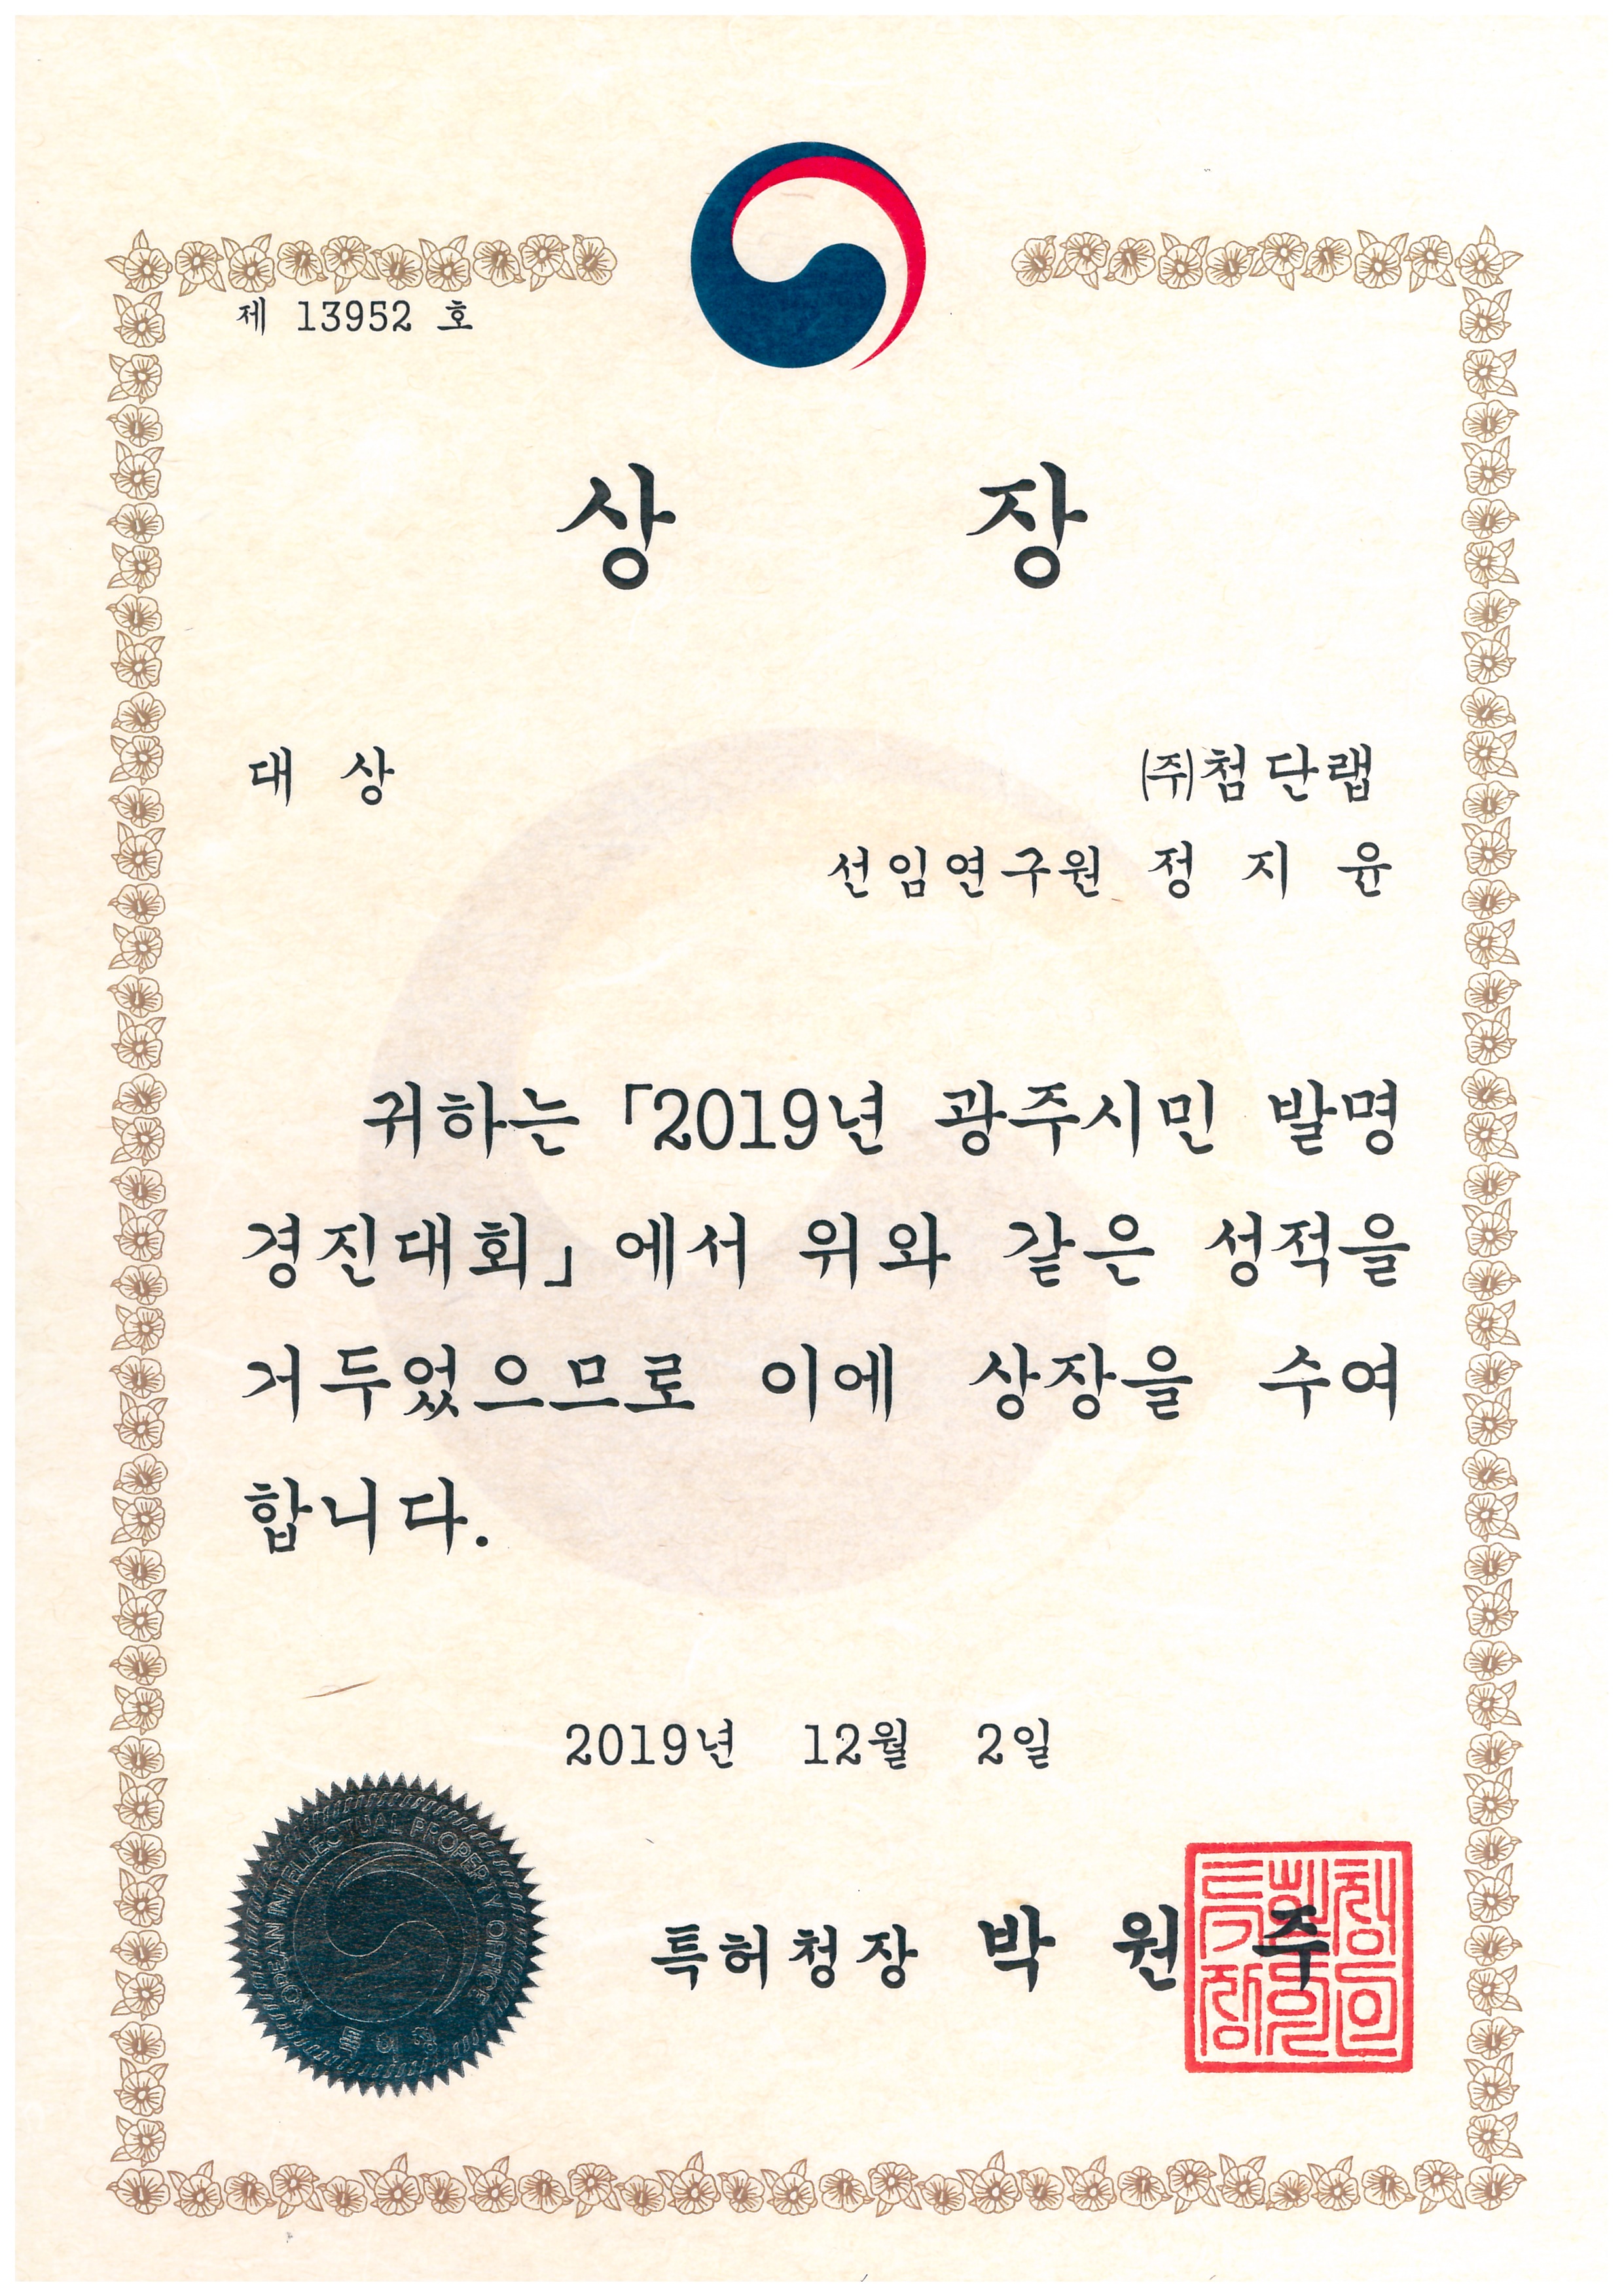 제 13952 호
상 장
대 상
㈜첨단랩
선임연구원 정 지 윤
귀하는 「2019년 광주시민 발명
경진대회」에서 위와 같은 성적을
거두었으므로 이에 상장을 수여
합니다.
2019년 12월 2일
KOREAN INTELLECTUAL PROPERTY OFFICE
특허청
특허청장 박 원 주
특허청장의인